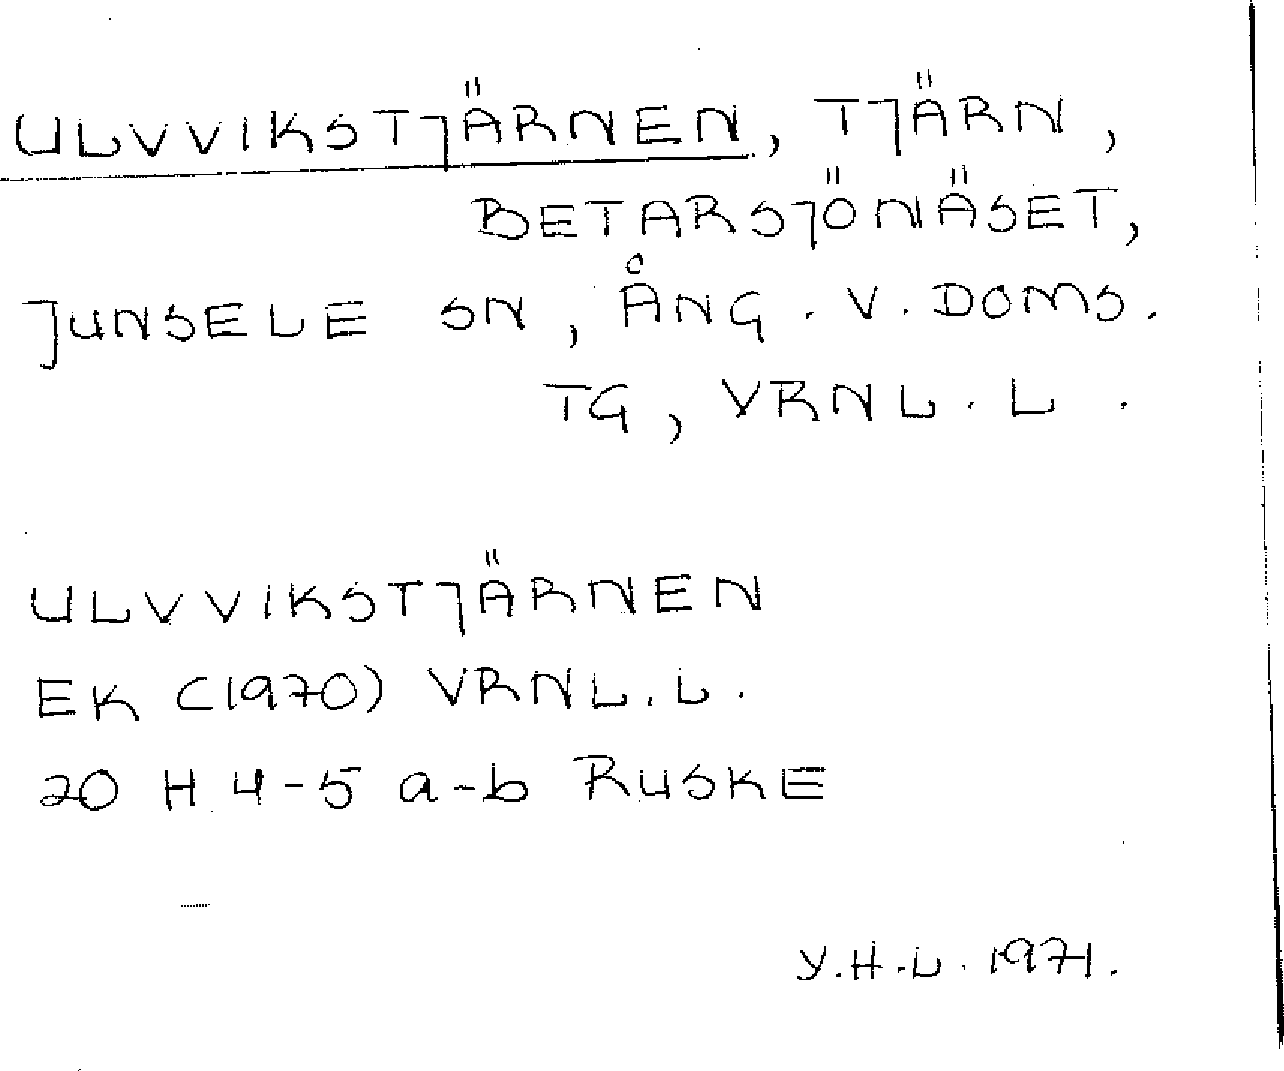 ULVVIKSTJÄRNEN, TJÄRN,
BETARSJÖNÄSET,
JUNSELE SN, ÅNG. V. DOMS.
TG, VRNL. L.
ULVVIKSTJÄRNEN
EK (1970) VRNL. L.
20 H 4-5 a-b RUSKE
Y.H.L. 1971.